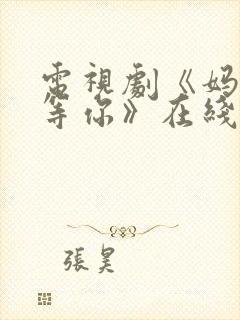 電視劇《妈
等你》在綫
張昊